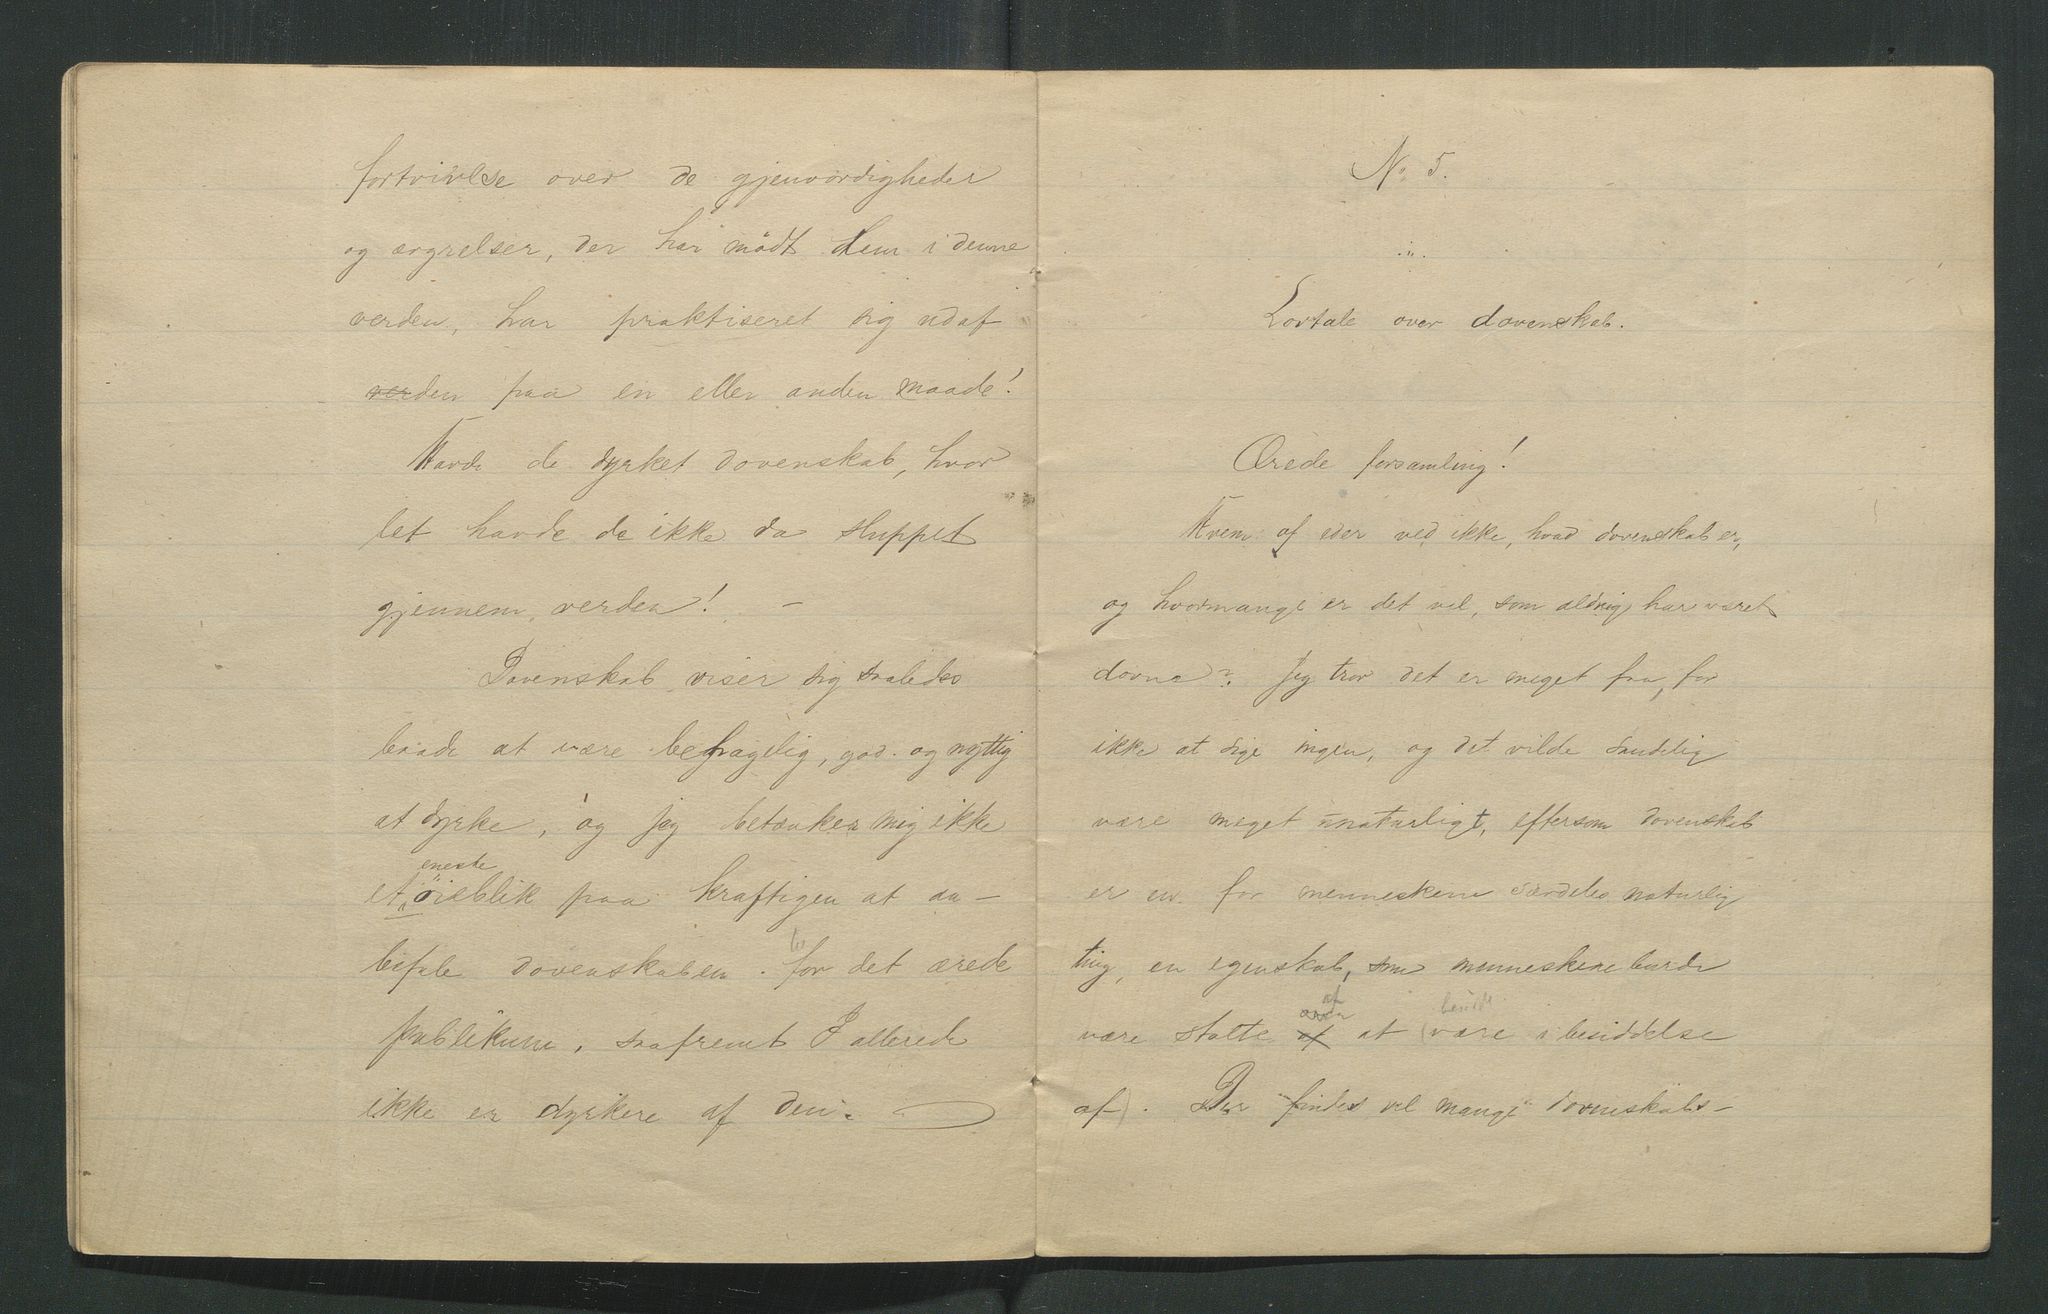 fortvivlse over de gjenvordigheder
og ærgrelser, der har mödt dem i denne
verden, har praktiseret sig ud af
verden paa en eller anden maade!
Havde de dyrket dovenskab, hvor
let havde de ikke da sluppet
gjennem verden! —
Dovenskab viser sig saaledes
baade at være behagelig, god og nyttig
at dyrke, og jeg betænker mig ikke
eneste
et öieblik paa kraftigen at an-
befale dovenskaben for det ærede
publikum, saafremt I allerede
ikke er dyrkere af den.
No 5.
Lovtale over dovenskab.
Ærede forsamling!
Hvem af eder ved ikke, hvad dovenskab er,
og hvormange er det vel, som aldrig har været
dovne? Jeg tror det er meget faa, for
ikke at sige ingen, og det vilde sandelig
være meget unaturligt, eftersom dovenskab
er en for menneskene særdeles naturlig
ting, en egenskab, som menneskene burde
af
over besidde
være stolte af at (være i besiddelse
af). Der findes vel mange dovenskabs-